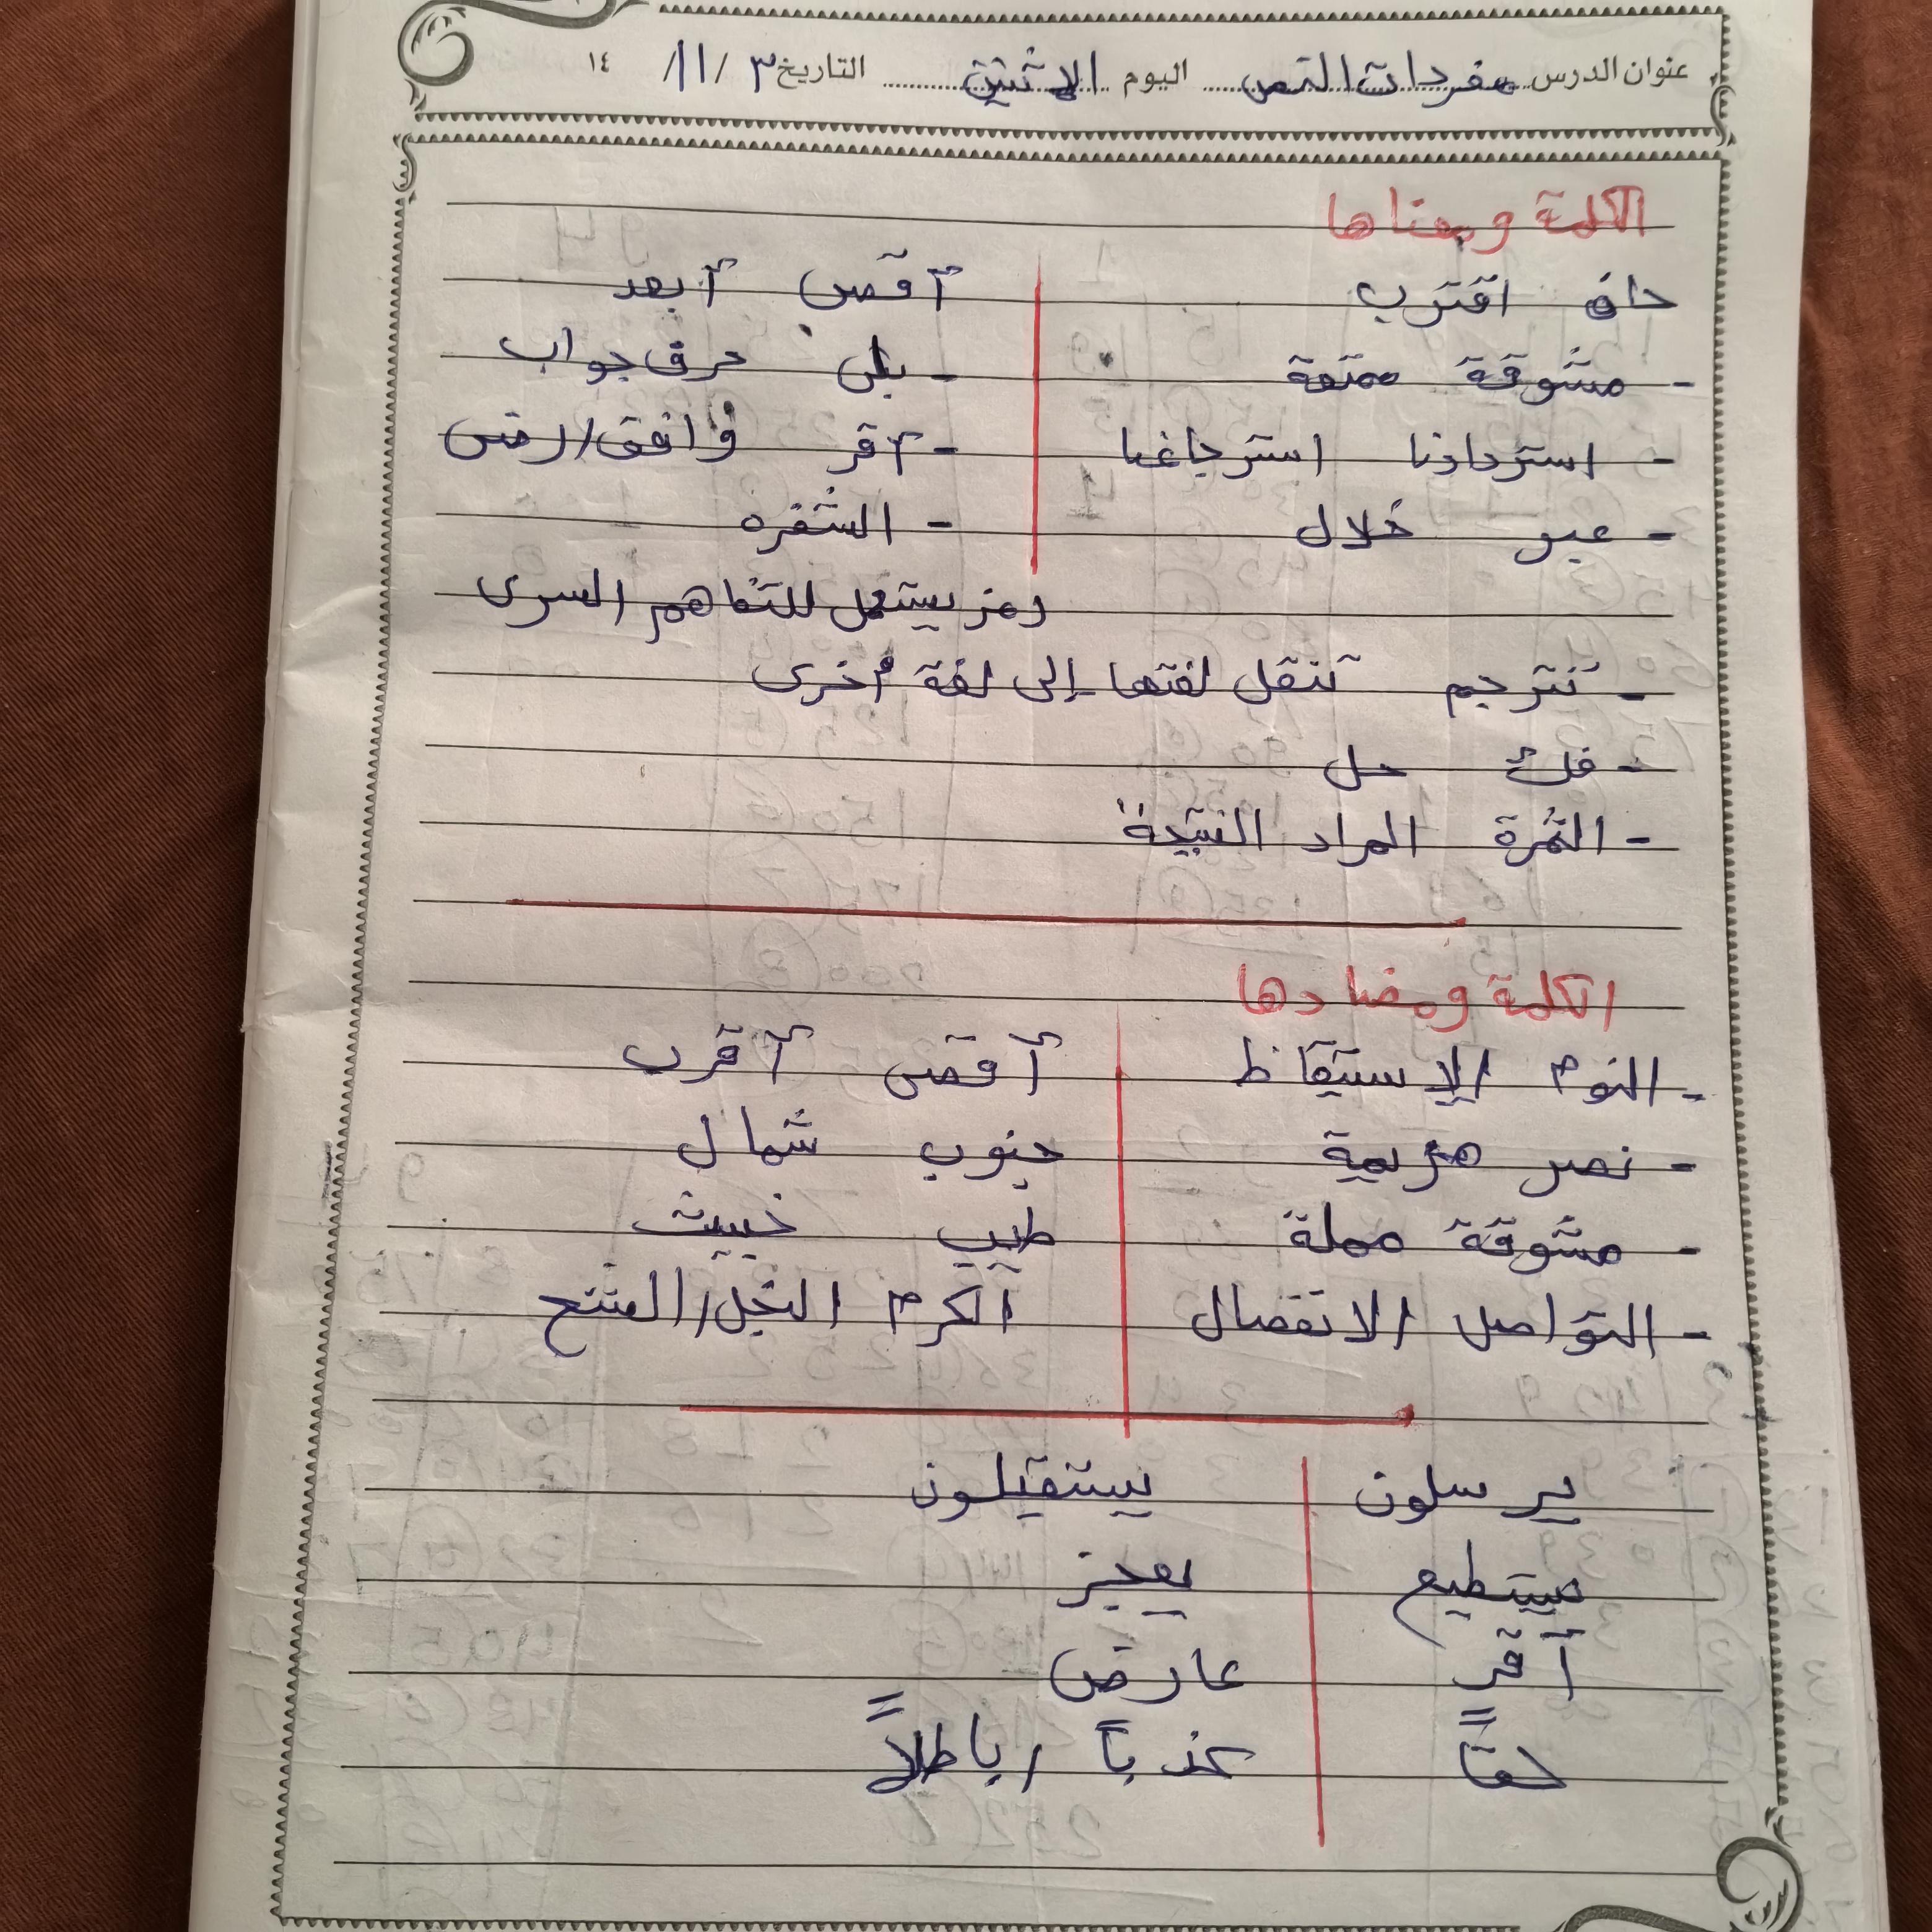 عنوان الدرس مفردات النص اليوم الإثنين التاريخ ٣ / ١١ / ١٤
الكلمة ومعناها
حان اقترب أقصى أبعد
- مشوقة ممتعة - بلى حرف جواب
- استردادنا استرجاعنا - أقر وافق/رضى
- عبر خلال - الشفره
رمز يستعمل للتفاهم السرى
- تترجم تنقل لغتها إلى لغة أخرى
- فك حل
- الثمرة المراد النتيجة
الكلمة ومضادها
- النوم الإستيقاظ أقصى أقرب
- نصر هزيمة جنوب شمال
- مشوقة مملة طيب خبيث
- التواصل الانفصال الكرم البخل/
يرسلون يستقبلون
يستطيع يعجز
أقر عارض
حقاً كذباً / باطلاً